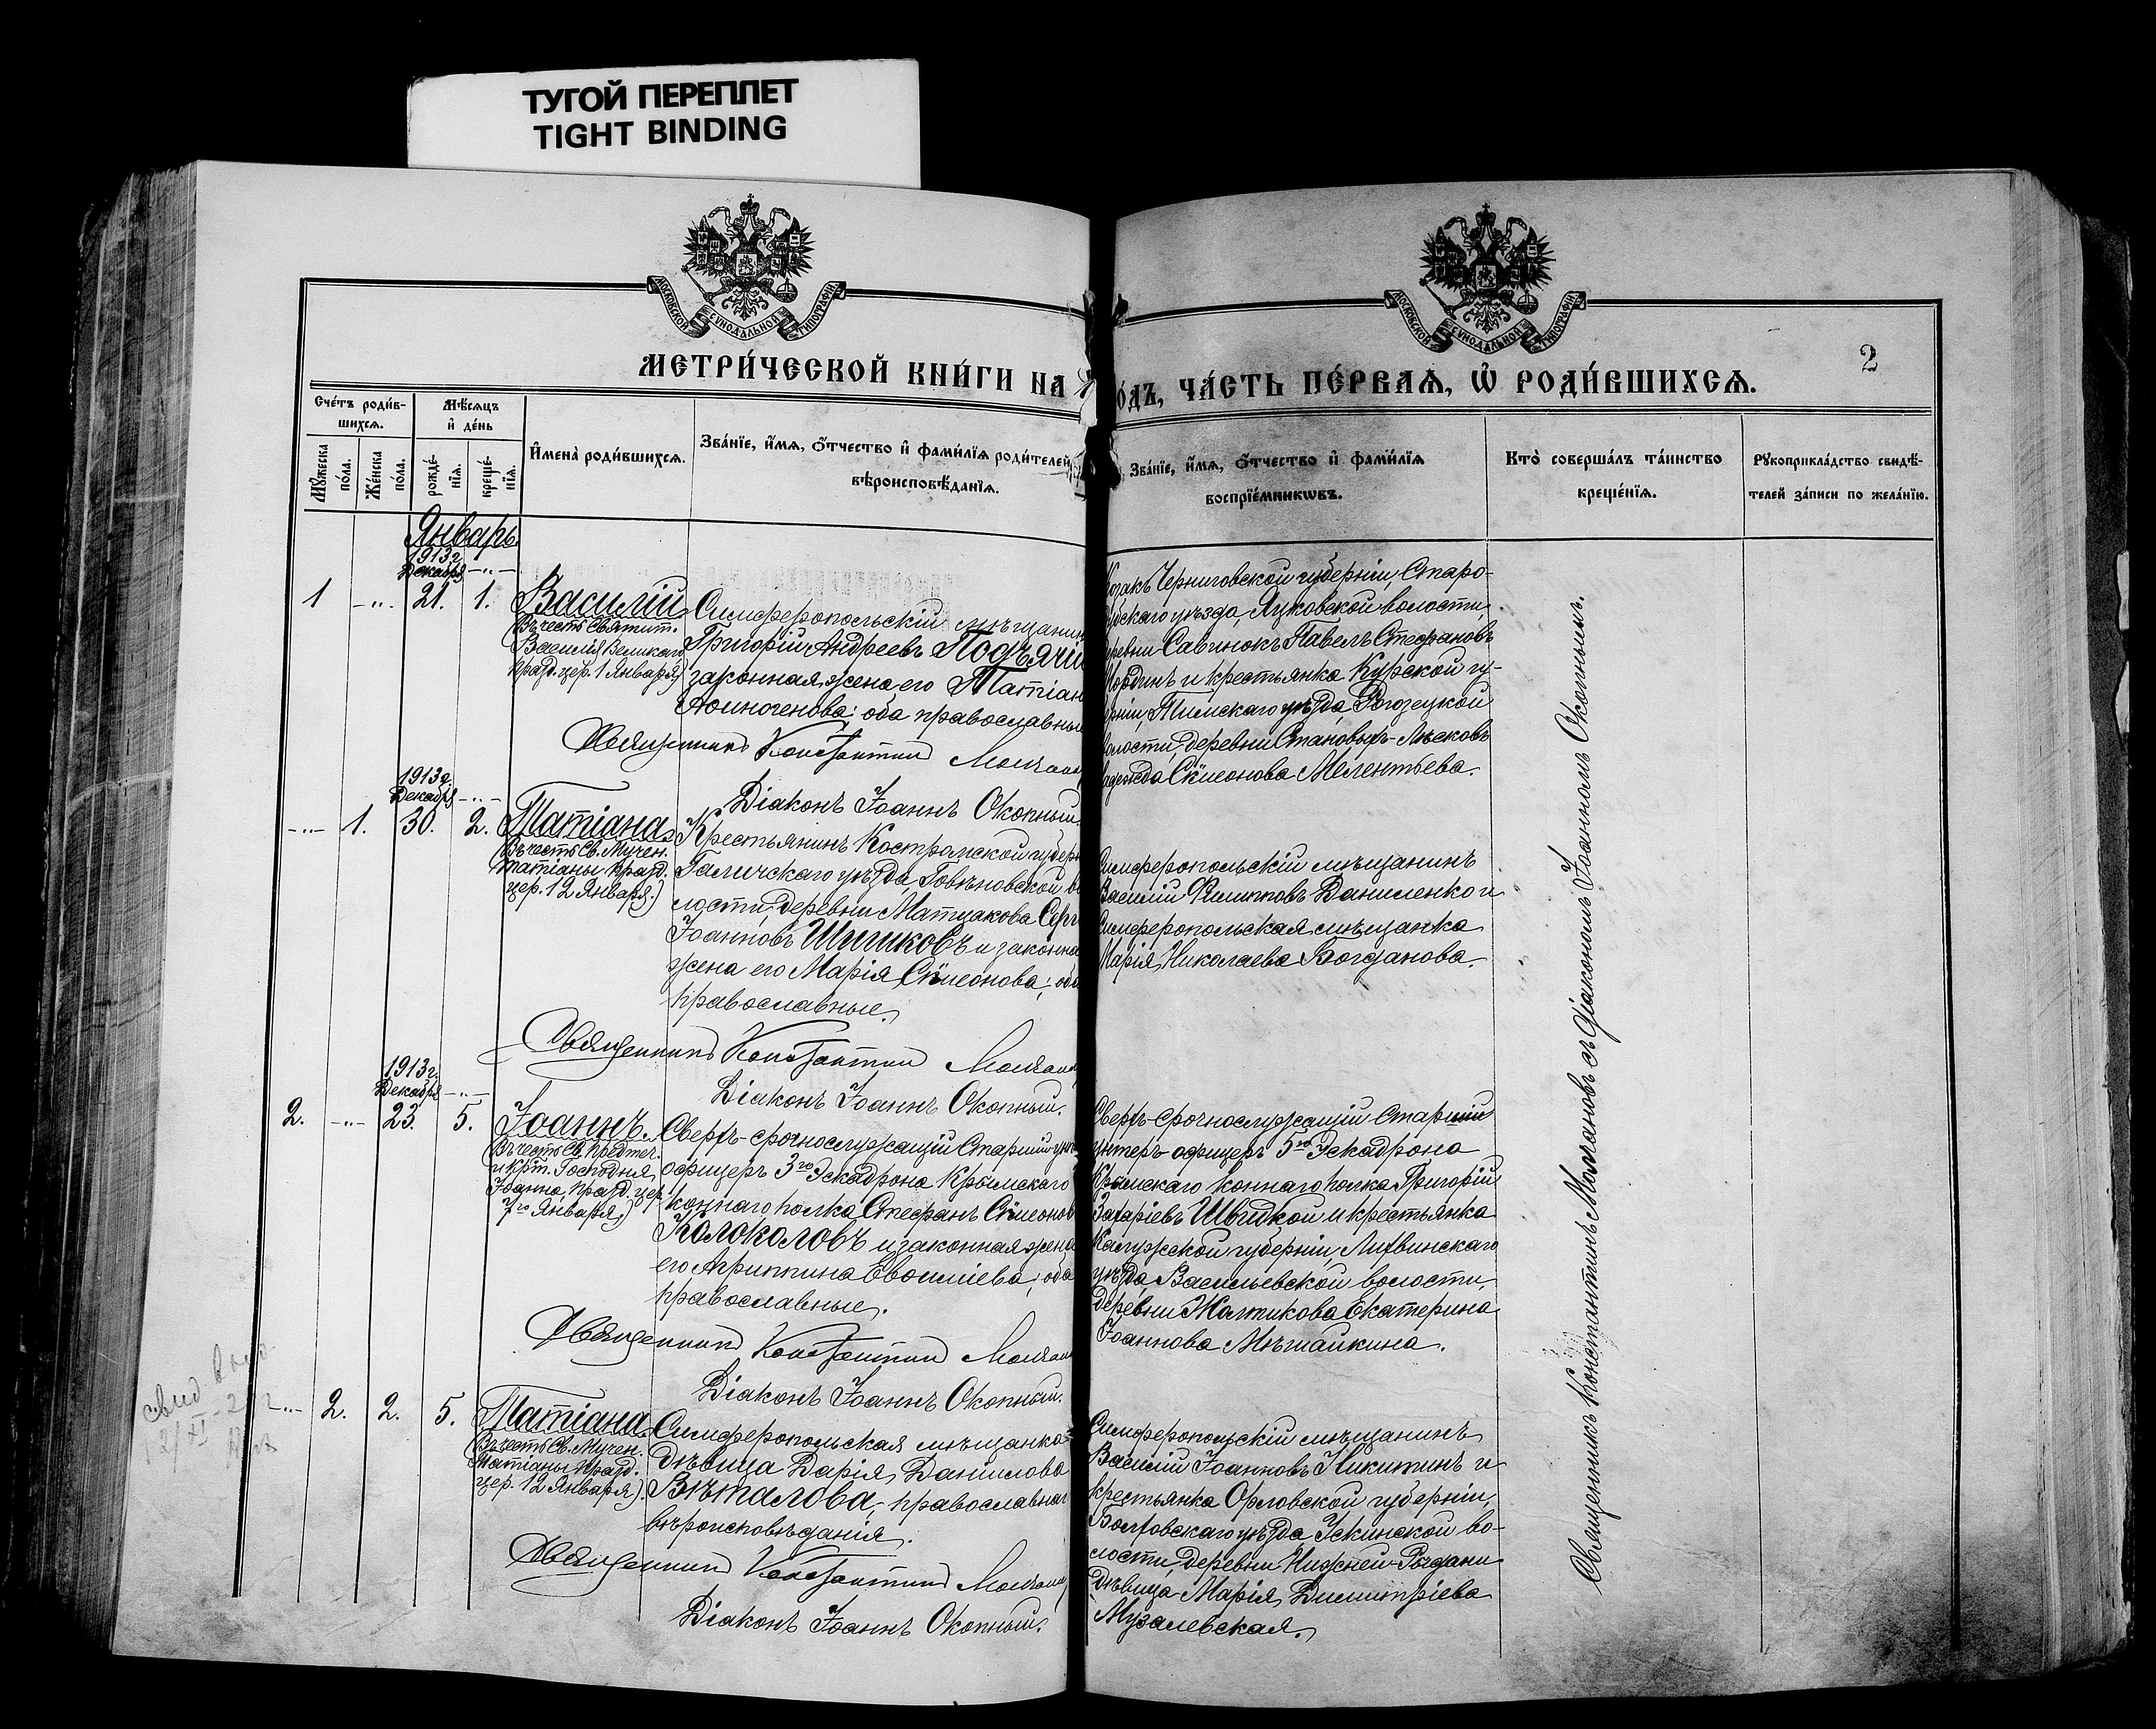 ТУГОЙ ПЕРЕПЛЕТ
TIGHT BINDING
МОСКОВСКОЙ СѴНОДАЛЬНОЙ ТИПОГРАФІИ
МОСКОВСКОЙ СѴНОДАЛЬНОЙ ТИПОГРАФІИ
2
МЕТРИ́ЧЕСКОЙ КНИ́ГИ НА 1
О́ДЪ, ЧА́СТЬ ПЕ́РВАѦ, Ѡ҆ РОДИ́ВШИХСѦ.
Сче́тъ роди́в-
шихсѧ.
Мѣ́сѧцъ
и҆ де́нь
Мꙋ́жеска
по́ла.
Же́нска
по́ла.
рожде́-
нїѧ.
креще́-
нїѧ.
И҆мена̀ роди́вшихсѧ.
Зва́нїе, и҆́мѧ, ѻ҆́тчество и҆ фами́лїѧ роди́телей
вѣроисповѣ́данїѧ.
Зва́нїе, и҆́мѧ, ѻ҆́тчество и҆ фами́лїѧ
воспрїе́мникѡвъ.
Кто̀ соверша́лъ та́инство
креще́нїѧ.
Рꙋкоприкла́дство свидѣ́-
телей за́писи по жела́нїю.
Январь
1913 г.
Декабря -„-
1 -„- 21. 1. Василій
(Въ честь Святит.
Василія Великаго
празд. цер. 1 Января)
Симферопольскій мѣщанин
Григорій Андреевъ Подъячій
законная жена его Татіан
Аѳиногенова; оба православны
Священникъ Константинъ Молчан
Діаконъ Іоаннъ Окопный.
Козакъ Черниговской губерніи, Старо-
дубскаго уѣзда, Яцковской волости,
деревни Савинокъ Павелъ Стефановъ
Мординъ и крестьянка Курской гу-
берніи, Тимскаго уѣзда, Рогозецкой
волости, деревни Становыхъ-Лѣсковъ
Надежда Сѵмеонова Мелентьева.
1913 г.
Декабря -„-
-„- 1. 30. 2. Татіана
(Въ честь Св. Мучен.
Татіаны празд.
цер. 12 Января.)
Крестьянинъ Костромской губер
Галичскаго уѣзда, Говѣновской во
лости, деревни Матцакова Серг
Іоанновъ Шишковъ и законна
жена его Марія Сѵмеонова; оба
православные.
Священникъ Константинъ Молчан
Діаконъ Іоаннъ Окопный.
Симферопольскій мѣщанинъ
Василій Филипповъ Даниленко и
Симферопольская мѣщанка
Марія Николаева Богданова.
1913 г.
Декабря -„-
2. -„- 23. 5. Іоаннъ.
(Въ честь Св. Предтеч.
и Крт. Господня
Іоанна, празд. цер.
7го Января.)
Сверхъ-срочнослужащій Старшій ун
офицеръ 3го Эскадрона Крымскаго
коннаго полка Стефанъ Сѵмеонов
Колоколовъ и законная жена
его Агриппина Евѳиміева; оба
православные.
Священникъ Константинъ Молчан
Діаконъ Іоаннъ Окопный.
Сверхъ-срочнослужащій Старшій
унтеръ-офицеръ 5го Эскадрона
Крымскаго Коннаго полка Григорій
Захаріевъ Швидкой и крестьянка
Калужской губерніи, Лихвинскаго
уѣзда, Васильевской волости,
деревни Желтикова Екатерина
Іоаннова Мѣшайкина.
-„- 2. 2. 5. Татіана
(Въ честь Св. Мучен.
Татіаны празд.
цер. 12 Января).
Симферопольская мѣщанка-
дѣвица Дарія Даніилова
Вѣталова, православнаг
вѣроисповѣданія.
Священникъ Константинъ Молчан
Діаконъ Іоаннъ Окопный.
Симферопольскій мѣщанинъ
Василій Іоанновъ Никитинъ и
крестьянка Орловской губерніи,
Болховскаго уѣзда Ускинской во-
лости, деревни Нижней-Радани
дѣвица Марія Димитріева
Музалевская.
Священникъ Константинъ Молчановъ съ діакономъ Іоанномъ Окопнымъ.